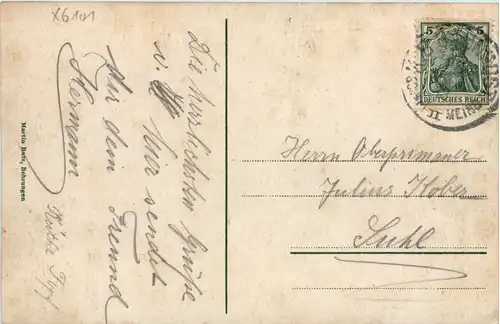 X6101
Die herzlichsten Grüße
v. hier sendet
Dir dein Freund
Hermann
Martin Buhr, Rohrungen
5 5
DEUTSCHES REICH
Herrn Oberprimaner
Julius Kober
Suhl